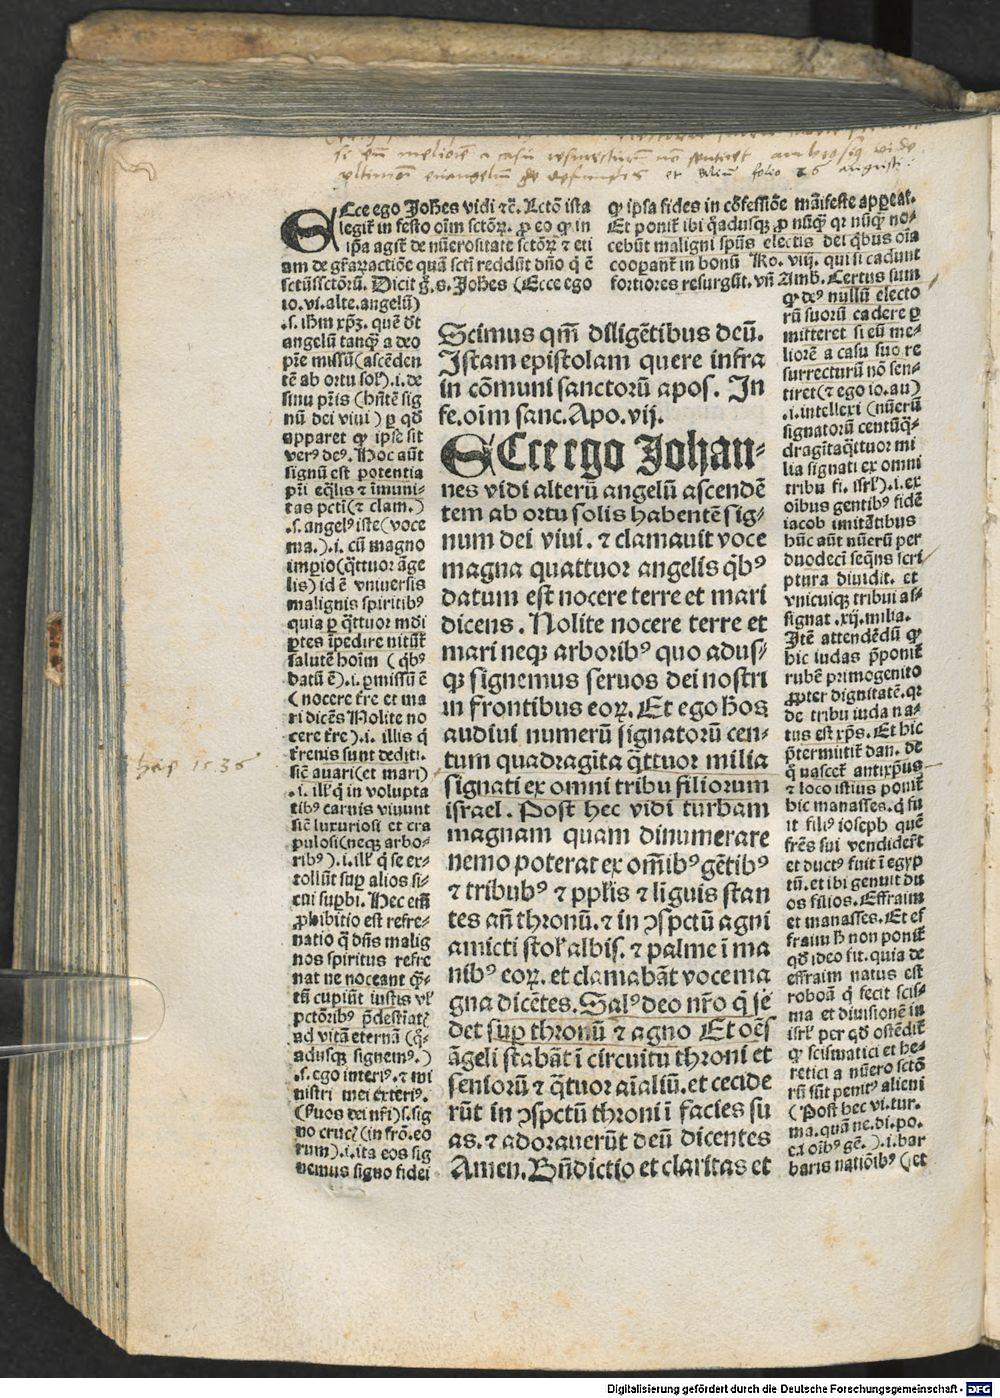 si eum meliorem a casu resurrecturum non sentiret ambrosius vide
ultimum evangelium de defunctis et aliud folio 26 augusti
ECce ego Joh̄es vidi ⁊c̄. Lectō ista
legit̄ in festo oīm sctōꝝ. ꝓ eo ꝙ in
ip̄a agit̄ de nūerositate sctōꝝ ⁊ eti
am de gr̄aꝝactiōe quā scti reddūt dño q̄ ē
sctūssctōrū. Dicit g̊. s. Joh̄es (Ecce ego
ꝙ ipsa fides in cōfessiōe māifeste appeat.
Et ponit̄ ibi q̄adusqꝫ ꝓ nūq̄ꝫ qr nūq̄ꝫ no-
cebūt maligni spūs electis dei q̄bus oīa
cooperant̄ in bonū Ro. viij. qui si cadunt
fortiores resurgūt. vn̄ Amb. Certus sum
io. vi. alte. angelū)
.s. ihm xp̄ꝫ. quē dt̄
angelū tanqꝫ a deo
pr̄e missū (ascēden
tē ab ortu sol̄) .i. de
sinu pr̄is (hn̄tē sig
nū dei viui) ꝑ qd̄
apparet ꝙ ipse sit
verꝰ deꝰ. Hoc aūt
signū est potentia
pr̄i eq̄lis ⁊ īmuni-
tas pcti (⁊ clam.)
.s. angelꝰ iste (voce
ma.) .i. cū magno
impio (q̄ttuor āge
lis) id ē vniuersis
malignis spiritibꝰ
quia ꝑ q̄ttuor mūdi
ꝑtes īpedire nitūt̄
salutē hoīm (q̄bꝰ
datū ē) .i. ꝑmissū ē
(nocere tr̄e et ma
ri dicēs Nolite no
cere tr̄e) .i. illis q̄
tr̄enis sunt dediti.
sic̄ auari (et mari)
.i. ill̄ q̄ in volupta
tibꝰ carnis viuunt
sic̄ luxuriosi et cra
pulosi (neqꝫ arbo-
ribꝰ) .i. ill̄ q̄ se ex-
tollūt sup alios si-
cut supbi. Hec em̄
ꝓhibitio est refre-
natio q̄ dn̄s malig
nos spiritus refre
nat ne noceant q̄ꝫ-
tū cupiūt iustis vl̄
pctōribꝰ p̄destīatꝭ
ad vitā eternā (q̊-
adusqꝫ signemꝰ.)
.s. ego interiꝰ. ⁊ mi
nistri mei exteriꝰ.
(ẜuos dei nr̄i) s. sig
no crucꝭ (in frō. eo
rum) .i. ita eos sig
nemus signo fidei
Scimus qm̄ diligētibus deū.
Istam epistolam quere infra
in cōmuni sanctorū apos. In
fe. oīm sanc. Apo. vij.
ECce ego Johan-
nes vidi alterū angelū ascendē
tem ab ortu solis habentē sig-
num dei viui. ⁊ clamauit voce
magna quattuor angelis q̄bꝰ
datum est nocere terre et mari
dicens. Nolite nocere terre et
mari neqꝫ arboribꝰ quo adus-
qꝫ signemus seruos dei nostri
in frontibus eoꝝ. Et ego h̄os
audiui numerū signatorū cen-
tum quadragīta q̄ttuor milia
signati ex omni tribu filiorum
israel. Post hec vidi turbam
magnam quam dinumerare
nemo poterat ex om̄ibꝰ gētibꝰ
⁊ tribubꝰ ⁊ ppl̄is ⁊ liguis stan
tes añ thronū. ⁊ in ↄspctū agni
amicti stol̄ albis. ⁊ palme ī ma
nibꝰ eoꝝ. et clamabāt voce ma
gna dicētes. Salꝰ deo nr̄o q̄ se
det sup thronū ⁊ agno Et oēs
āgeli stabāt ī circuitu throni et
seniorū ⁊ q̄tuor aīaliū. et cecide
rūt in ↄspctū throni ī facies su
as. ⁊ adorauerūt deū dicentes
Amen. Bn̄dictio et claritas et
ꝙ deꝰ nullū electo
rū suorū cadere ꝑ
mitteret si eū me-
liorē a casu suo re
surrecturū nō sen-
tiret (⁊ ego io. au)
.i. intellexi (nūerū
signatorū centūq̄-
dragītaq̄ttuor mi
lia signati ex omni
tribu fi. isrl̄) .i. ex
oībus gentibꝰ fidē
iacob imitātibus
hūc aūt nūerū per
duodecī seqn̄s scri
ptura diuidit. et
vnicuiqꝫ tribui as-
signat .xij. milia.
Itē attendēdū ꝙ
hic iudas p̄ponit̄
rubē primogenito
ꝓpter dignitatē. qr
de tribu iuda na-
tus est xp̄s. Et hic
p̄termittit̄ dan. de
q̊ nascet̄ antixp̄us
⁊ loco istius ponit̄
hic manasses. q̄ fu
it filiꝰ ioseph quē
fr̄es sui vendidert̄
et ductꝰ fuit ī egyp
tū. et ibi genuit du
os filios. Effraim
et manasses. Et ef
fraim h̄ non ponit̄
qd̄ ideo fit. quia de
effraim natus est
roboā q̄ fecit scis-
ma et diuisionē in
isrl̄ per qd̄ ostēdit̄
ꝙ scismatici et he-
retici a nūero sctō
rū sūt penitꝰ alieni
(Post hec vi. tur.
ma. quā ne. di. po.
ex oībꝰ gē.) .i. bar
baris natiōibꝰ (et
hap 1536
Digitalisierung gefördert durch die Deutsche Forschungsgemeinschaft - DFG